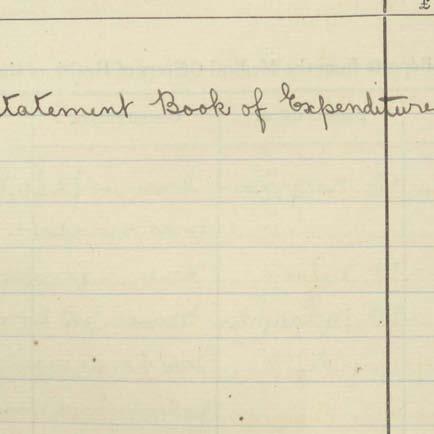 £
tatement Book of Expenditure